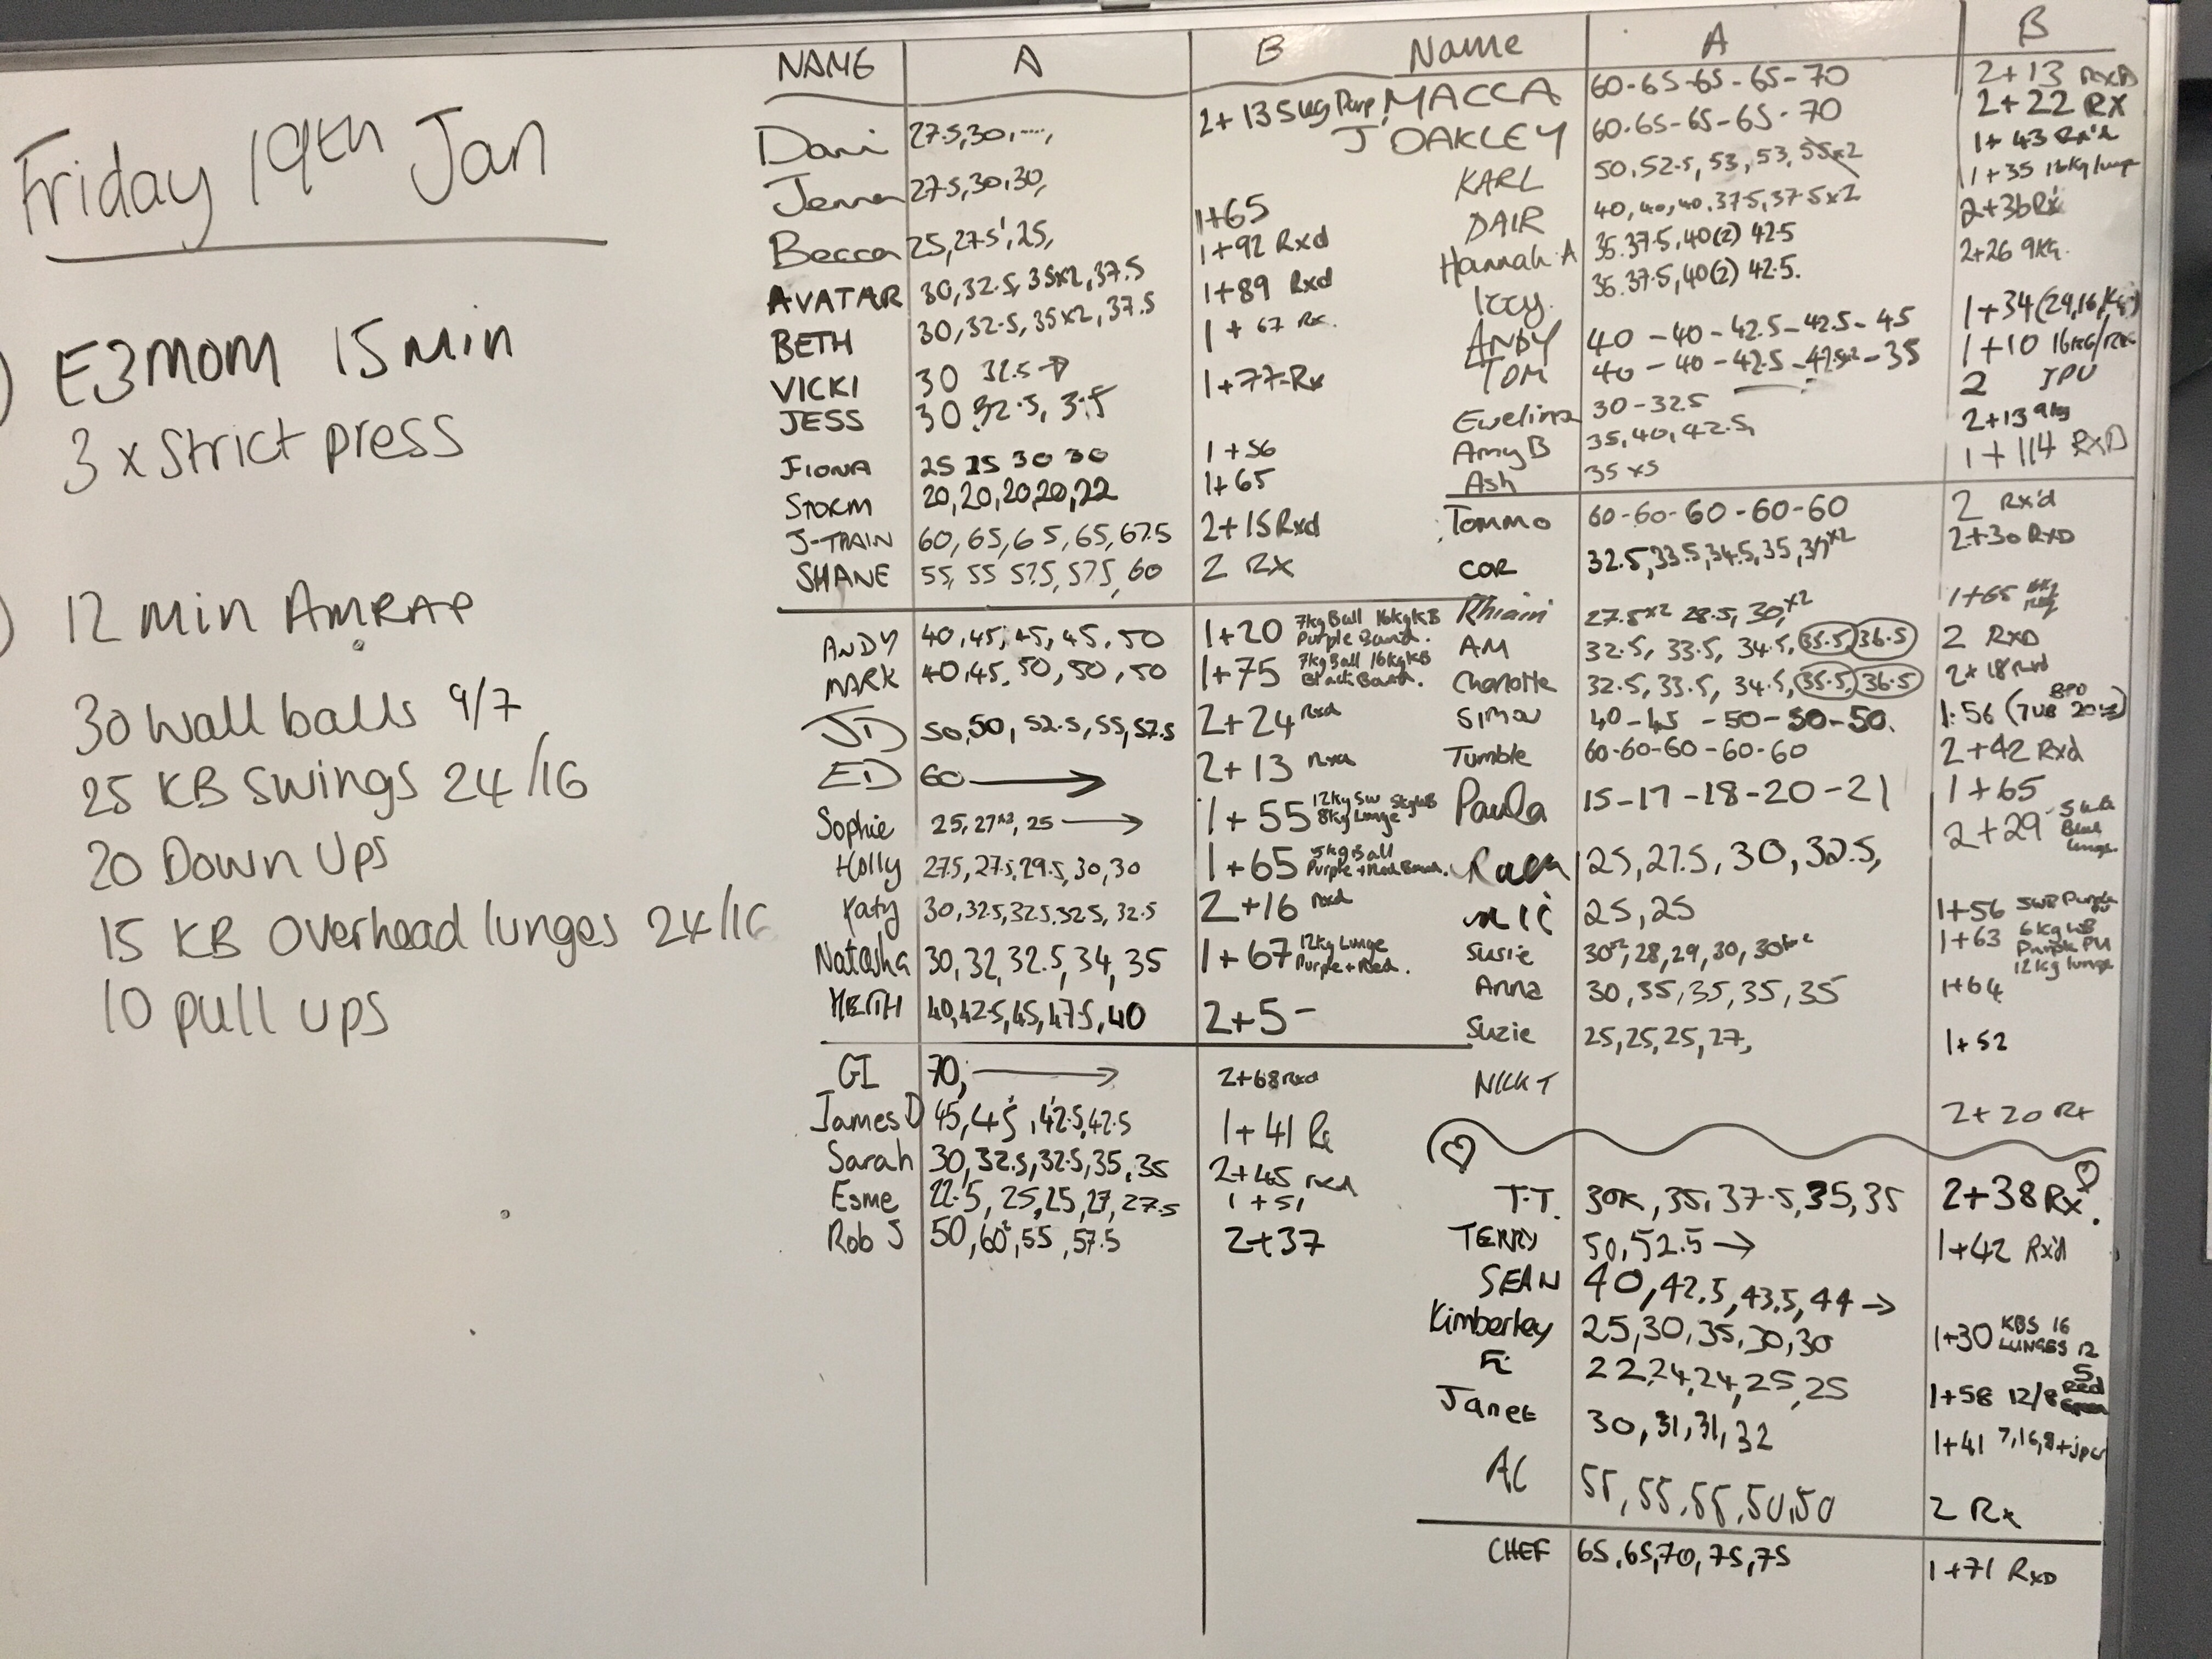 Friday 19th Jan
E3MOM 15 Min
3 x Strict press
12 Min AMRAP
30 Wall balls 9/7
25 KB Swings 24/16
20 Down Ups
15 KB Overhead lunges 24/16
10 pull ups
NAME A B
Dani 27.5, 30, ...., 2+13 5kg Purp
Jenna 27.5, 30, 30,
Becca 25, 27.5, 25, 1+65
AVATAR 30, 32.5, 35x2, 37.5 1+92 Rxd
BETH 30, 32.5, 35x2, 37.5 1+89 Rxd
VICKI 30 32.5 → 1+67 Rx.
JESS 30, 32.5, 35 1+77 Rx
FIONA 25 25 30 30 1+56
STORM 20, 20, 20, 20, 22 1+65
J-TRAIN 60, 65, 65, 65, 67.5 2+15 Rxd
SHANE 55, 55 57.5, 57.5, 60 2 RX
ANDY 40, 45, 45, 45, 50 1+20 7kg Ball 16kg KB Purple Band.
MARK 40, 45, 50, 50, 50 1+75 7kg Ball 16kg KB Black Band.
JD 50, 50, 52.5, 55, 57.5 2+24 Rxd
ED 60 → 2+13 Rxd
Sophie 25, 27x2, 25 → 1+55 12kg Sw 5kg WB 8kg Lunge
Holly 27.5, 27.5, 29.5, 30, 30 1+65 5kg Ball Purple + Red Band.
Katy 30, 32.5, 32.5, 32.5, 32.5 2+16 Rxd
Natasha 30, 32, 32.5, 34, 35 1+67 12kg Lunge Purple + Red.
KEITH 40, 42.5, 45, 47.5, 40 2+5 -
GI 70, → 2+68 Rxd
James D 45, 45, 42.5, 42.5 1+41 Rx
Sarah 30, 32.5, 32.5, 35, 35 2+45 rxd
Esme 22.5, 25, 25, 27, 27.5 1+51
Rob J 50, 60, 55, 57.5 2+37
Name A B
MACCA 60-65-65-65-70 2+13 RxD
J'OAKLEY 60-65-65-65-70 2+22 RX
KARL 50, 52.5, 53, 53, 55x2 1+43 Rx'd
DAIR 40, 40, 40, 37.5, 37.5x2 1+35 16kg lunge
Hannah.A 35. 37.5, 40(2) 42.5 2+36 Rx
Izzy. 35. 37.5, 40(2) 42.5. 2+26 9KG.
ANDY 40 - 40 - 42.5 - 42.5 - 45 1+34
TOM 40 - 40 - 42.5 - 42.5x2 - 35 1+10 16KG
Ewelina 30-32.5 2 JPU
Amy B 35, 40, 42.5, 2+13 9kg
Ash 35 x5 1+114 RxD
Tommo 60-60-60-60-60 2 Rx'd
COR 32.5, 33.5, 34.5, 35, 37x2 2+30 RxD
Rhiain 27.5x2 28.5, 30,x2 1+65 6kg
AM 32.5, 33.5, 34.5, 35.5, 36.5 2 RxD
Charlotte 32.5, 33.5, 34.5, 35.5, 36.5 2+18 Rxd
Simon 40-45-50-50-50. 1+56
Tumble 60-60-60-60-60 2+42 Rxd
Paula 15-17-18-20-21 1+65
25, 27.5, 30, 32.5, 2+29
25, 25 1+56 5WB Purple
Susie 30x2, 28, 29, 30, 30x2 1+63 6kg WB Purple PU 12kg lunge
Anna 30, 35, 35, 35, 35 1+64
Suzie 25, 25, 25, 27, 1+52
NICK T 2+20 Rx
T.T. 30K, 35, 37.5, 35, 35 2+38 Rx.
TERRY 50, 52.5 → 1+42 Rx'd
SEAN 40, 42.5, 43.5, 44 →
Kimberley 25, 30, 35, 30, 30 1+30 KBS 16 LUNGES 12
Fi 22, 24, 24, 25, 25 1+58 12/8 5 Red
Janet 30, 31, 31, 32 1+41 7, 16, 8 + jpu
AC 55, 55, 55, 50, 50 2 Rx
CHEF 65, 65, 70, 75, 75 1+71 RxD